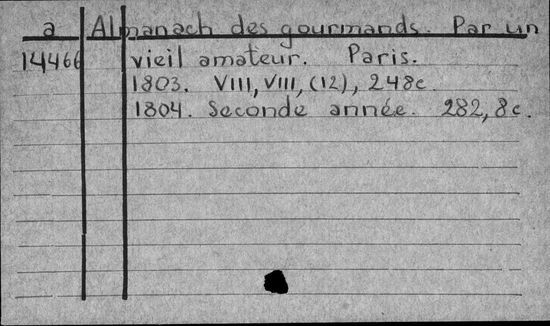 a Almanach des gourmands. Par un
14466 vieil amateur. Paris.
1803. VIII, VIII, (12), 248c.
1804. Seconde année. 282, 8c.